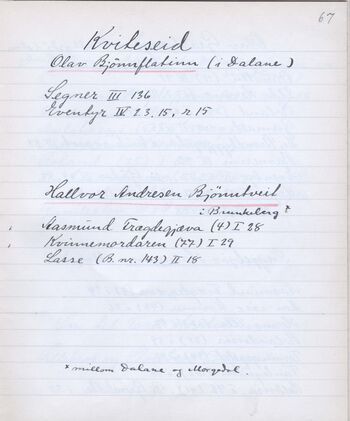 67
Kviteseid
Olav Bjönnflatinn (i Dalane)
Segner III 136
Eventyr IV 23, 15, r 15
Hallvor Andresen Bjönntveit
i Brunkeberg *
Aasmund Fræglegjæva (4) I 28
Kvinnemordaren (77) I 29
Lasse (B. nr. 143) II 18
* millom Dalane og Morgedal.